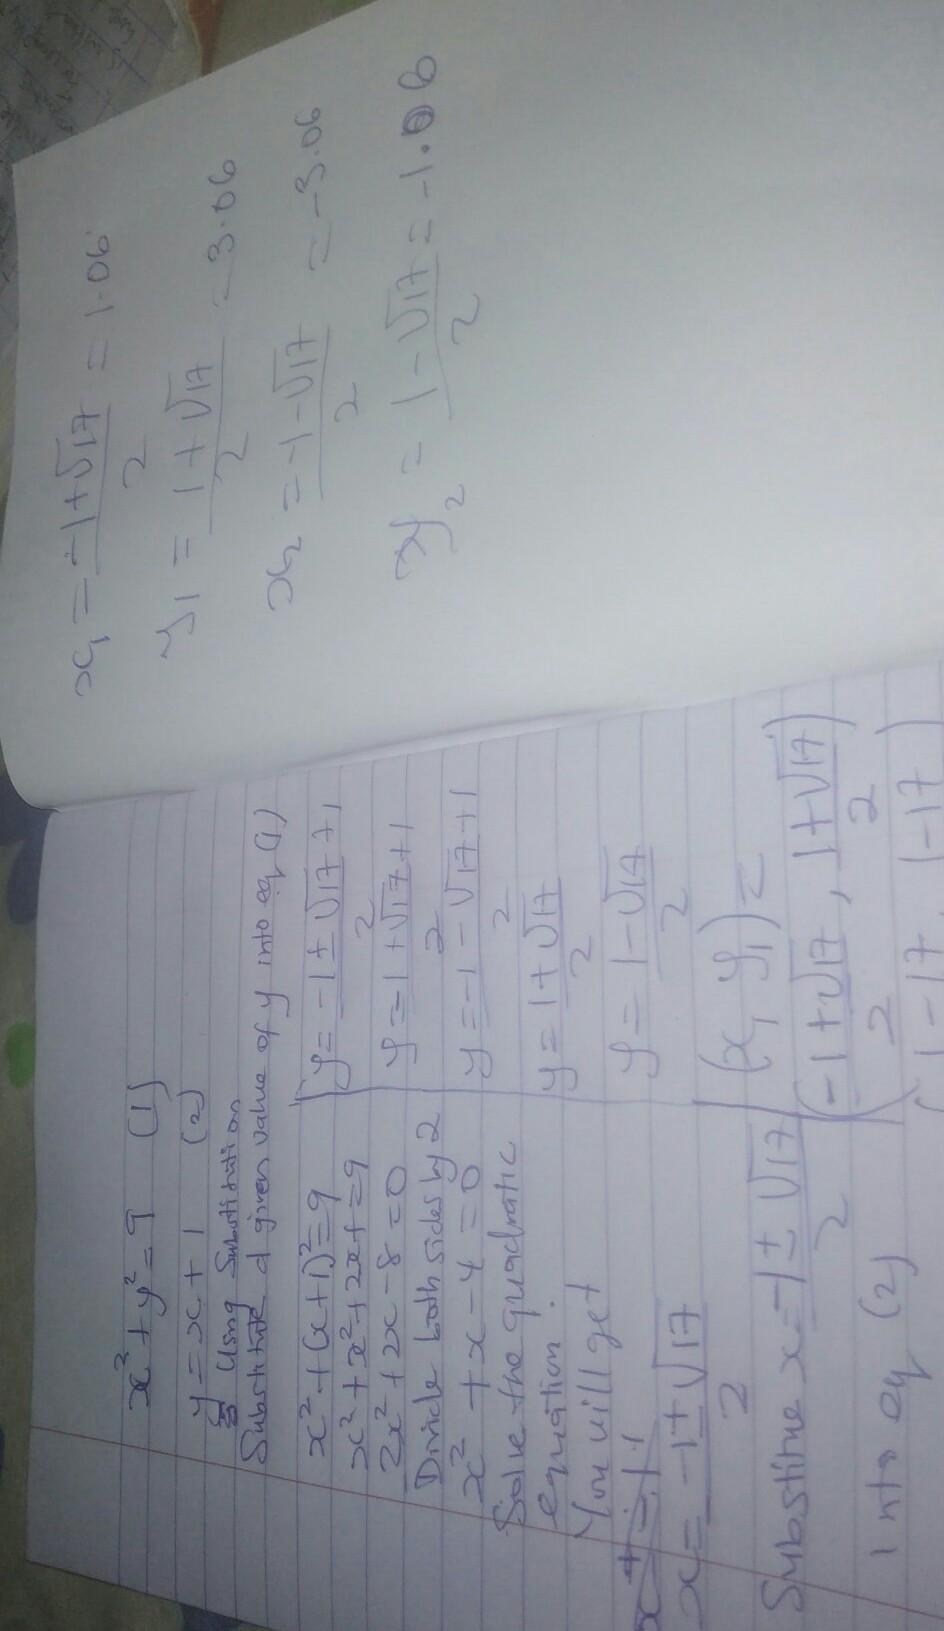 x² + y² = 9 (1)
y = x + 1 (2)
Using Substitution
Substitute d given value of y into eq (1)
x² + (x+1)² = 9
x² + x² + 2x+1 = 9
2x² + 2x - 8 = 0
Divide both sides by 2
x² + x - 4 = 0
Solve the quadratic
equation.
You will get
x = -1 ± √17 / 2
Substitute x = -1 ± √17 / 2
into eq (2)
y = -1 ± √17 / 2 + 1
y = -1 + √17 / 2 + 1
y = -1 - √17 / 2 + 1
y = 1 + √17 / 2
y = 1 - √17 / 2
(x, y₁) =
(-1 + √17 / 2 , 1 + √17 / 2)
x₁ = -1 + √17 / 2 = 1.06
y₁ = 1 + √17 / 2 = 3.06
x₂ = -1 - √17 / 2 = -3.06
y₂ = 1 - √17 / 2 = -1.06